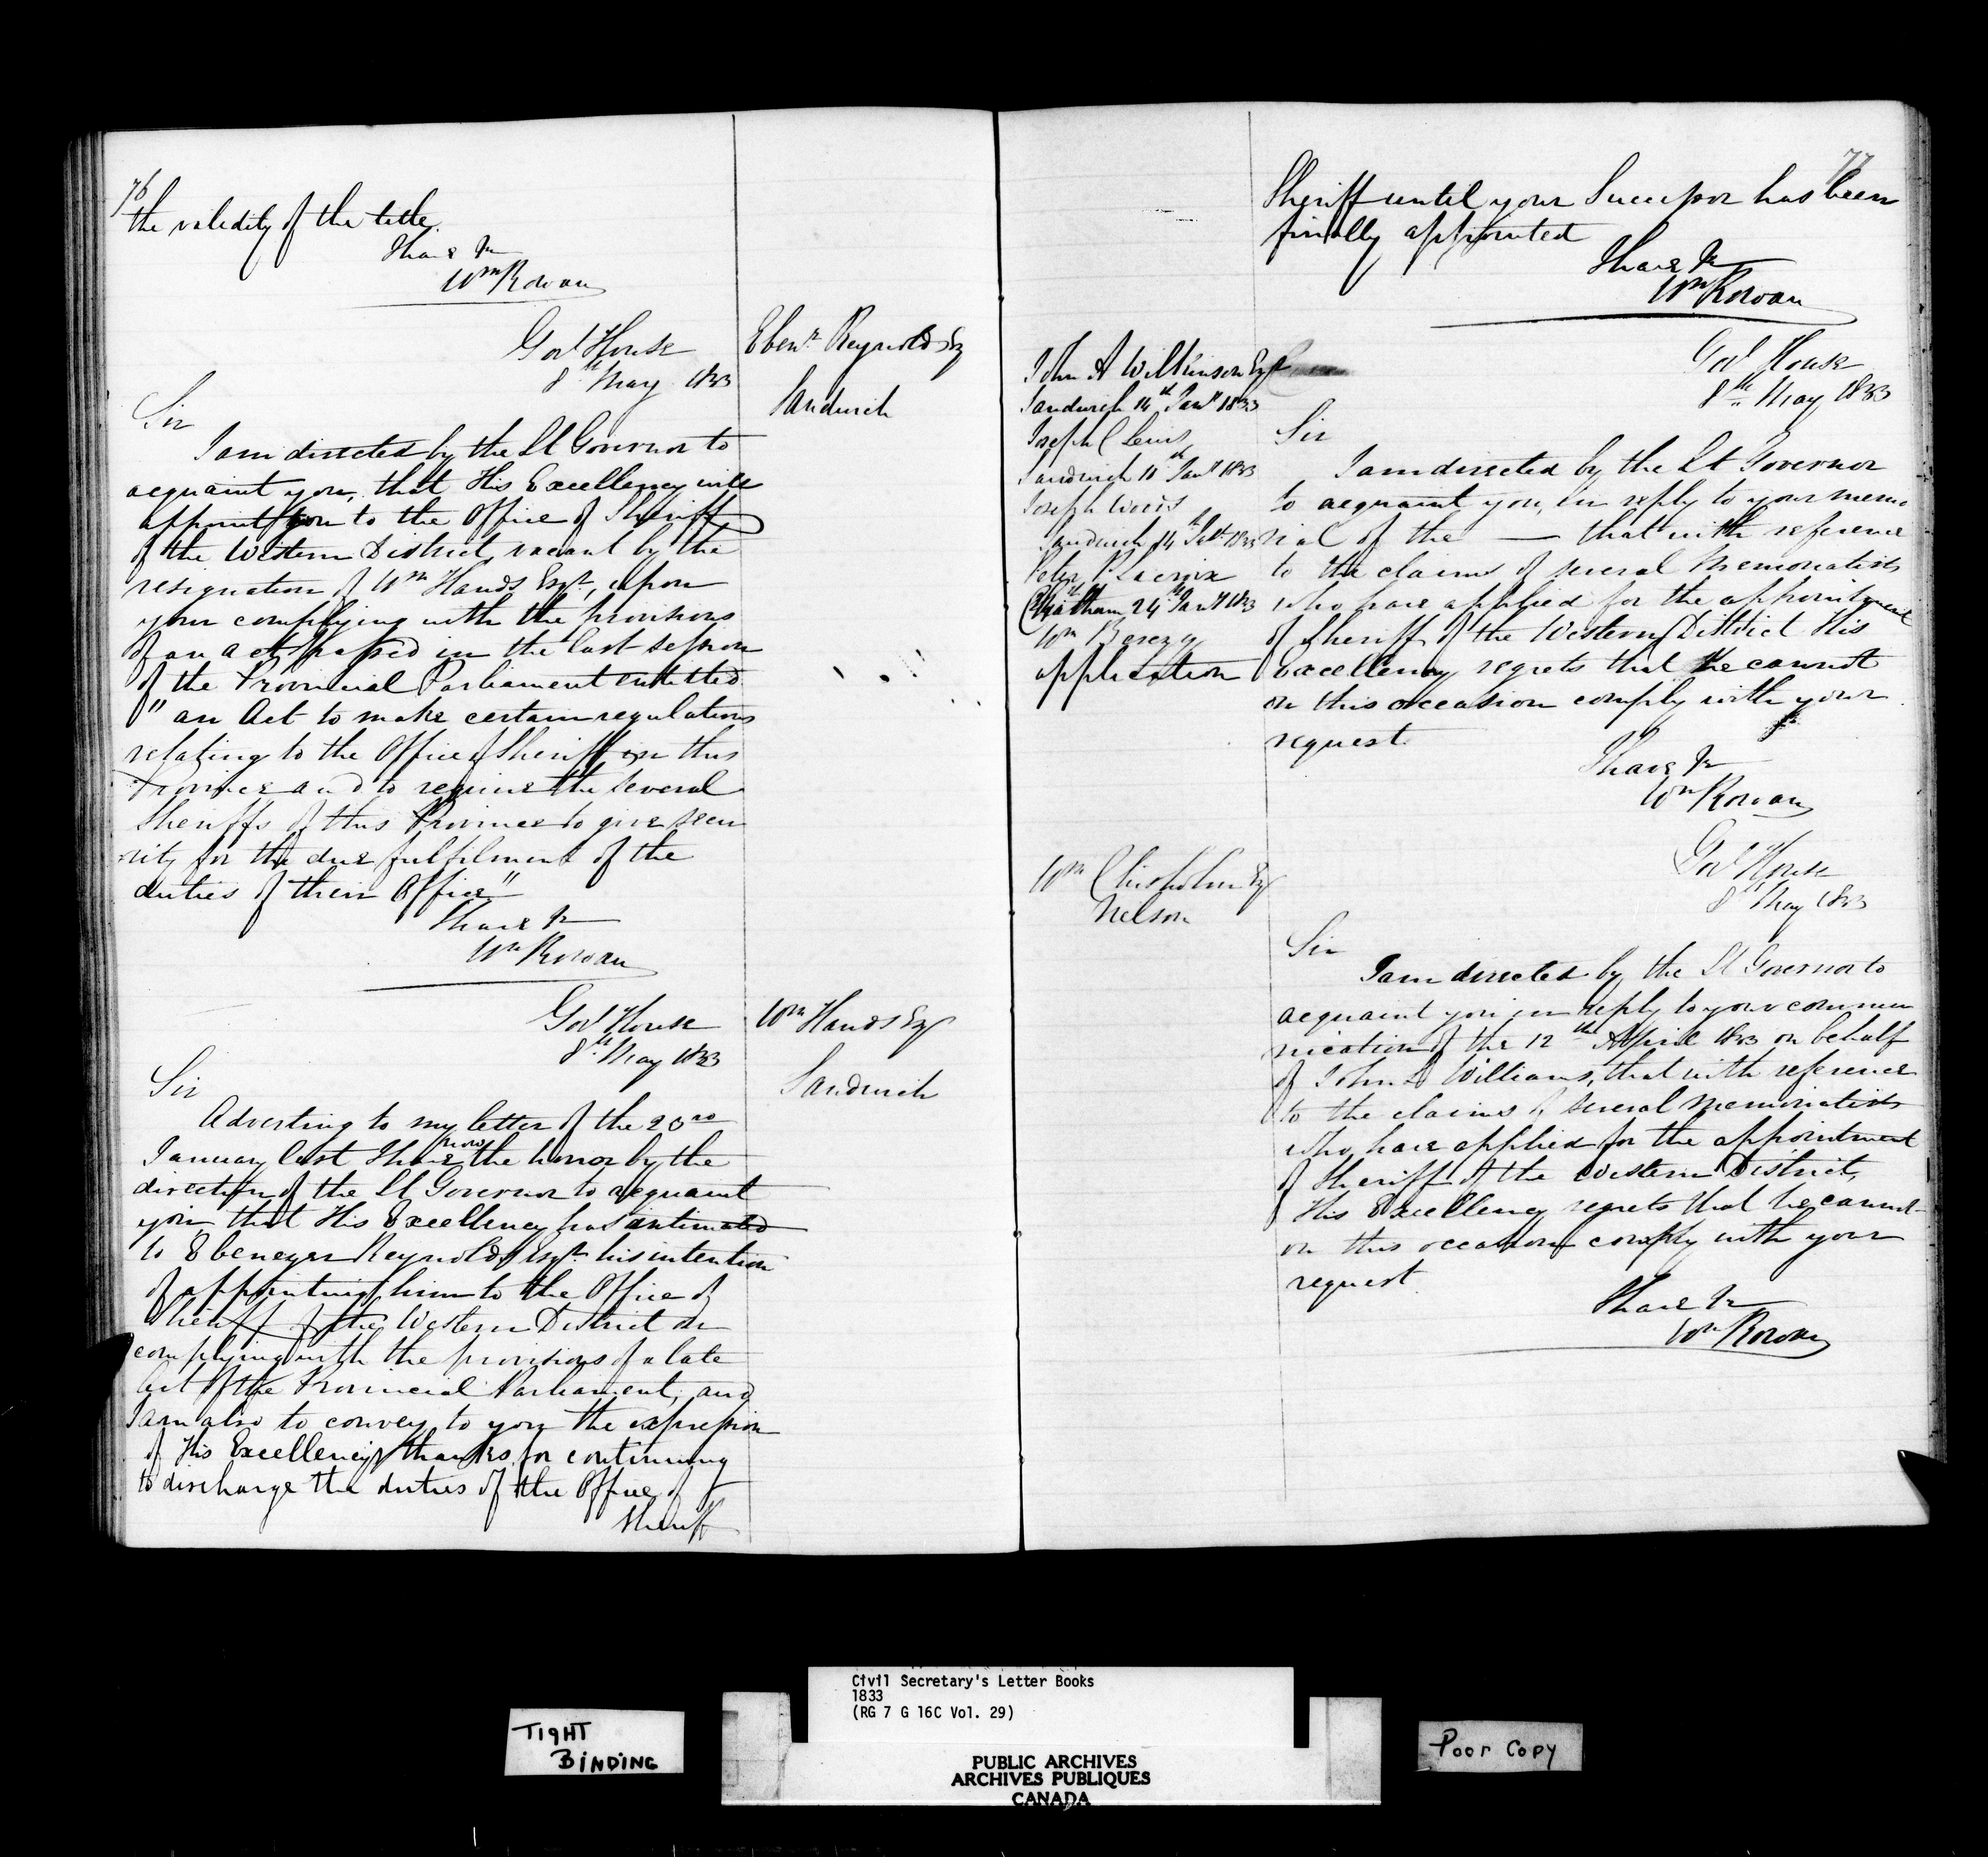 76
the validity of the title.
I have &c
Wm Rowan
Govt House
8th May 1833
Ebenr Reynolds Esq
Sandwich
Sir
I am directed by the Lt Governor to
acquaint you, that His Excellency will
appoint you to the Office of Sheriff
of the Western District, vacant by the
resignation of Wm Hands Esqr, upon
your complying with the provisions
of an act passed in the last session
of the Provincial Parliament entitled
"an Act to make certain regulations
relating to the Office of Sheriff in this
Province and to require the several
Sheriffs of this Province to give secu
rity for the due fulfilment of the
duties of their Office"
I have &c
Wm Rowan
Govt House
8th May 1833
Wm Hands Esq
Sandwich
Sir
Adverting to my letter of the 23rd
January last I have now the honor by the
direction of the Lt Governor to acquaint
you that His Excellency has intimated
to Ebenezer Reynolds Esqr. his intention
of appointing him to the Office of
Sheriff of the Western District on
complying with the provisions of a late
Act of the Provincial Parliament, and
I am also to convey to you the expression
of His Excellency's thanks for continuing
to discharge the duties of the Office of
Sheriff
77
Sheriff until your Successor has been
finally appointed
I have &c
Wm Rowan
Govt House
8th May 1833
John A Wilkinson Esq
Sandwich 14th Jany 1833
Joseph C Lewis
Sandwich 10th Jany 1833
Joseph Woods
Sandwich 14th 1833
Peter P Lacroix
Chatham 24th Jany 1833
Wm
application
Sir
I am directed by the Lt Governor
to acquaint you, in reply to your memo
rial of the — that with reference
to the claims of several Memorialists
who have applied for the appointment
of Sheriff of the Western District His
Excellency regrets that He cannot
on this occasion comply with your
request.
I have &c
Wm Rowan
Govt House
8th May 1833
Wm Chisholm Esq
Nelson
Sir
I am directed by the Lt Governor to
acquaint you in reply to your commu
nication of the 12th April 1833 on behalf
of John Williams, that with reference
to the claims of several Memorialists
who have applied for the appointment
of Sheriff of the Western District,
His Excellency regrets that he cannot
on this occasion comply with your
request.
I have &c
Wm Rowan
Civil Secretary's Letter Books
1833
(RG 7 G 16C Vol. 29)
TIGHT
BINDING
PUBLIC ARCHIVES
ARCHIVES PUBLIQUES
CANADA
Poor Copy